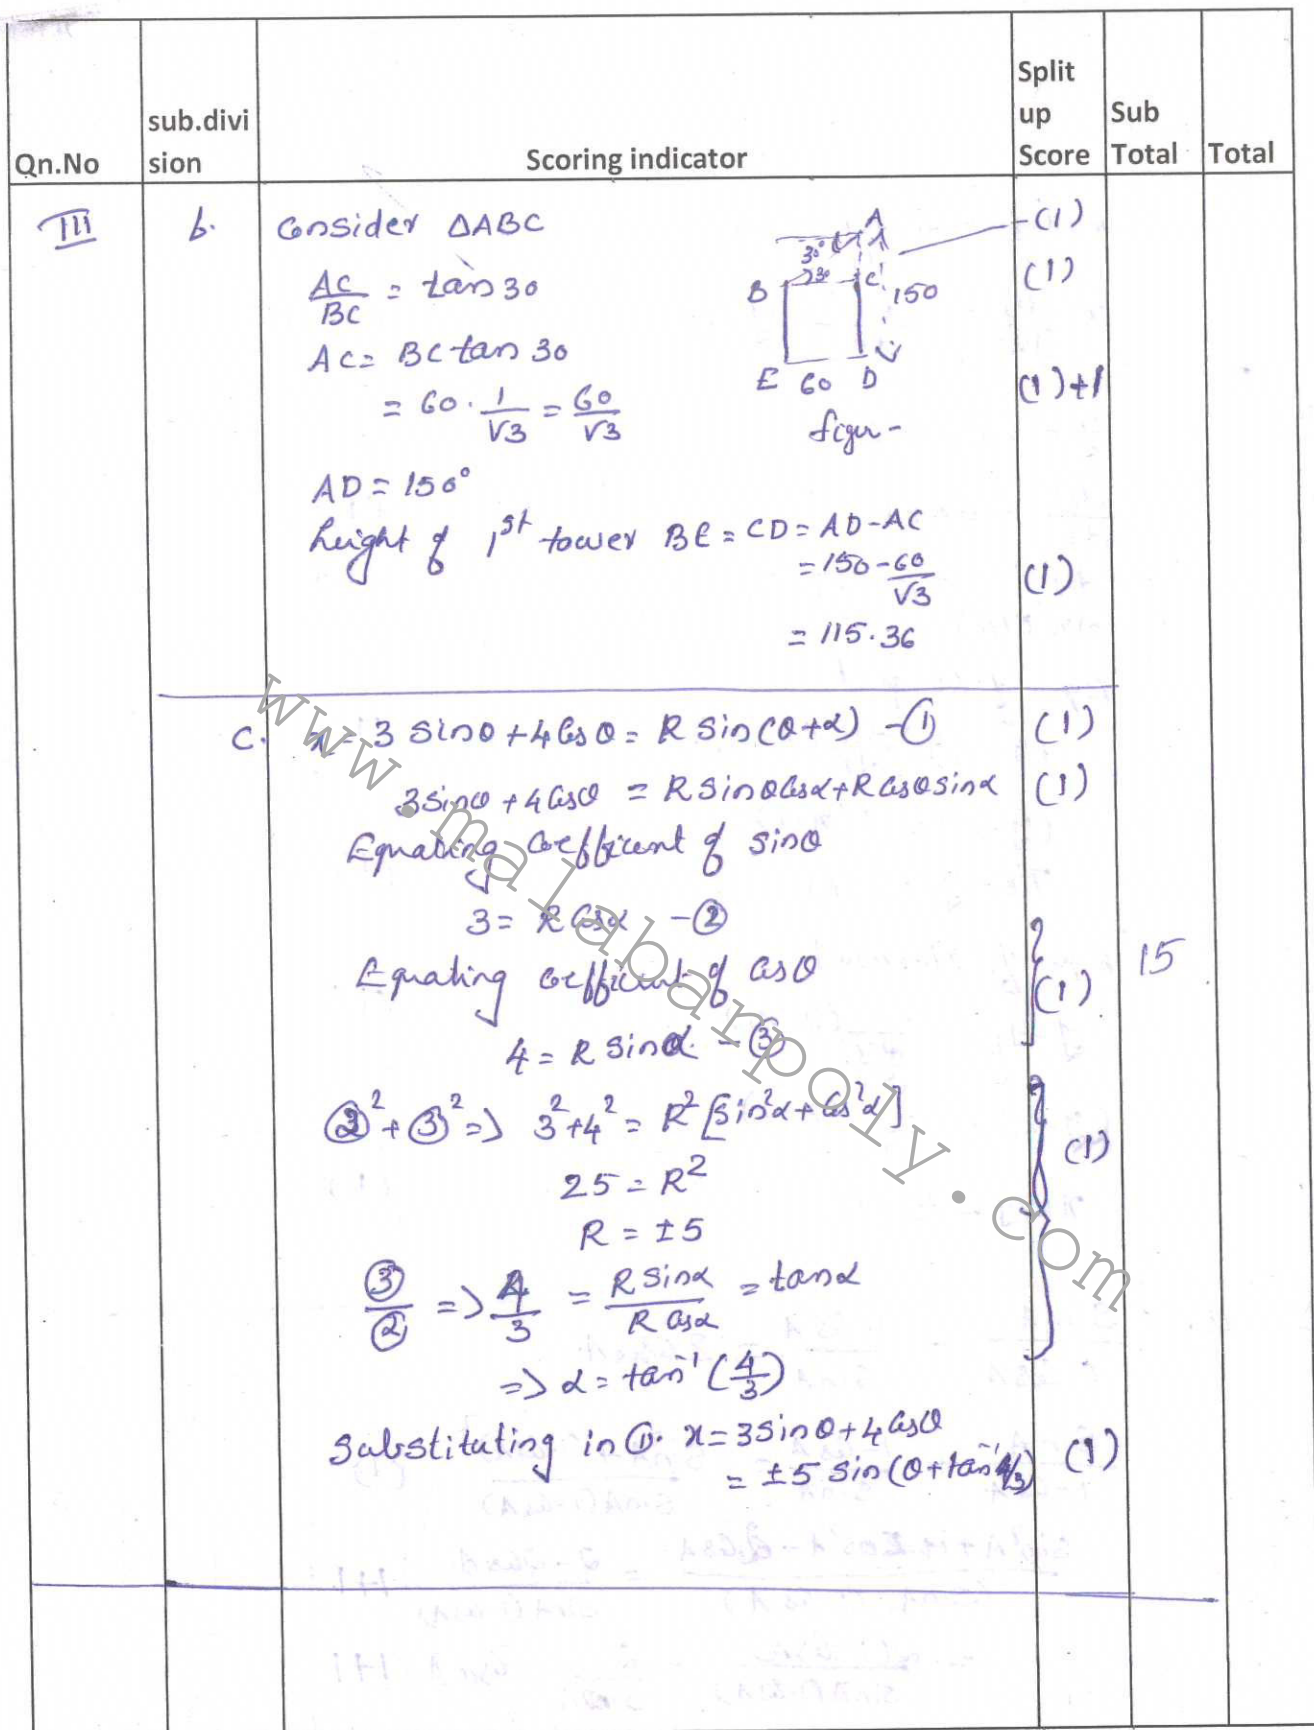 Qn.No sub.divi sion Scoring indicator Split up Score Sub Total Total
III b. Consider ΔABC -(1)
AC/BC = tan 30 (1)
AC = BC tan 30
= 60 · 1/√3 = 60/√3 (1)+1
A
30°
30
B C 150
E 60 D
figur-
AD = 150°
height of 1st tower BE = CD = AD-AC
= 150 - 60/√3 (1)
= 115.36
c. x = 3 sinθ + 4 cosθ = R sin(θ+α) -① (1)
3 sinθ + 4 cosθ = R sinθ cosα + R cosθ sinα (1)
Equating coefficient of sinθ
3 = R cosα -②
Equating coefficient of cosθ (1) 15
4 = R sinα -③
②² + ③² => 3²+4² = R² [sin²α + cos²α]
25 = R² (1)
R = ±5
③/② => 4/3 = R sinα/R cosα = tanα
=> α = tan⁻¹(4/3)
Substituting in ①. x = 3 sinθ + 4 cosθ
= ±5 sin(θ + tan⁻¹4/3) (1)
www.malabarpoly.com